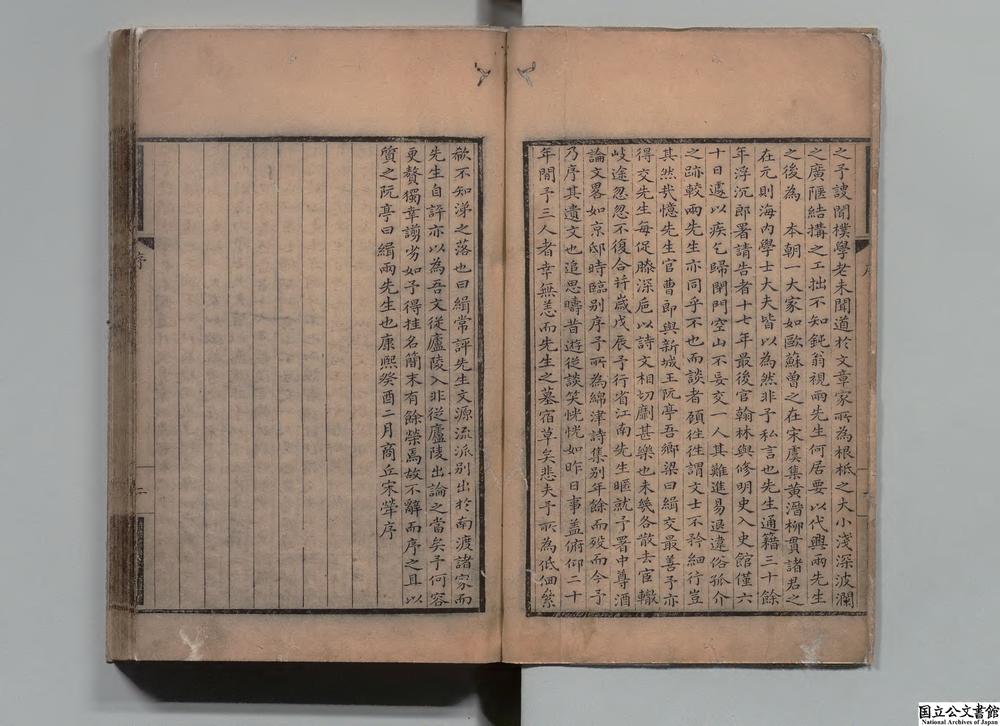 之予謏聞樸學老未聞道於文章家所為根柢之大小淺深波瀾
之廣陿結搆之工拙不知鈍翁視兩先生何居要以代興兩先生
之後為　本朝一大家如歐蘇曾之在宋虞集黃溍柳貫諸君之
在元則海内學士大夫皆以為然非予私言也先生通籍三十餘
年浮沉郎署請告者十七年最後官翰林與修明史入史館僅六
十日遽以疾乞歸閉門空山不妄交一人其難進易退違俗孤介
之跡較兩先生亦同乎不也而談者顧往往謂文士不矜細行豈
其然哉憶先生官曹郎與新城王阮亭吾鄉梁曰緝交最善予亦
得交先生每促膝深巵以詩文相切劘甚樂也未㡬各散去宦轍
岐途忽忽不復合并歲戊辰予行省江南先生暱就予署中尊酒
論文畧如京邸時臨别序予所為綿津詩集别年餘而歿而今予
乃序其遺文也追思疇昔遊從談笑恍恍如昨日事盖俯仰二十
年間予三人者幸無恙而先生之墓宿草矣悲夫予所為低佪纍
欷不知涕之落也曰緝常評先生文源流派别出於南渡諸家而
先生自評亦以為吾文從廬陵入非從廬陵出論之當矣予何容
更贅獨弇謭劣如予得挂名簡末有餘榮焉故不辭而序之且以
質之阮亭曰緝兩先生也康熙癸酉二月商丘宋犖序
序
二
国立公文書館
National Archives of Japan